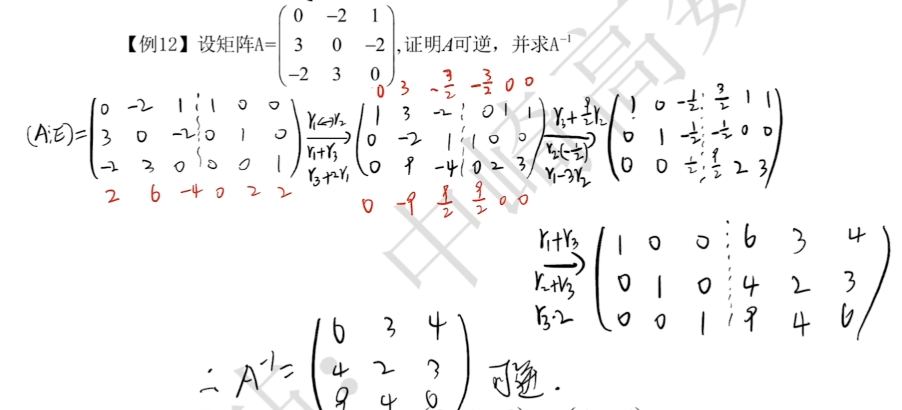 【例12】设矩阵A=(0 -2 1; 3 0 -2; -2 3 0),证明A可逆，并求A⁻¹
0 3 -3/2 -3/2 0 0
(A⋮E)=(0 -2 1 ⋮ 1 0 0; 3 0 -2 ⋮ 0 1 0; -2 3 0 ⋮ 0 0 1) r₁↔r₂ r₁+r₃ r₃+2r₁ → (1 3 -2 ⋮ 0 1 1; 0 -2 1 ⋮ 1 0 0; 0 9 -4 ⋮ 0 2 3) r₃+9/2r₂ r₂(-1/2) r₁-3r₂ → (1 0 -1/2 ⋮ 3/2 1 1; 0 1 -1/2 ⋮ -1/2 0 0; 0 0 1/2 ⋮ 9/2 2 3)
2 6 -4 0 2 2
0 -9 9/2 9/2 0 0
r₁+r₃ r₂+r₃ r₃·2 → (1 0 0 ⋮ 6 3 4; 0 1 0 ⋮ 4 2 3; 0 0 1 ⋮ 9 4 6)
∴ A⁻¹=(6 3 4; 4 2 3; 9 4 6) 可逆.
中崎高数